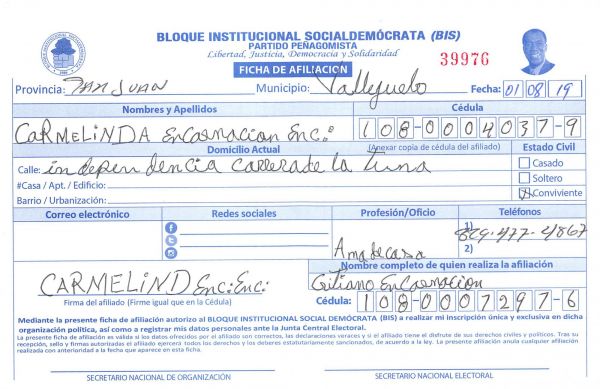 BLOQUE INSTITUCIONAL SOCIALDEMÓCRATA (BIS)
PARTIDO PEÑAGOMISTA
Libertad, Justicia, Democracia y Solidaridad
39976
FICHA DE AFILIACIÓN
Provincia: San Juan Municipio: Vallejuelo Fecha: 01/08/19
Nombres y Apellidos Cédula
CARMELINDA Encarnacion Enc: 108-0004037-9
Domicilio Actual (Anexar copia de cédula del afiliado) Estado Civil
Calle: independencia carrera de la tuna
Casado
#Casa / Apt. / Edificio:
Soltero
Barrio / Urbanización:
Conviviente
Correo electrónico Redes sociales Profesión/Oficio Teléfonos
1) 829-477-4867
Ama de casa 2)
Nombre completo de quien realiza la afiliación
CARMELIND Enc: Enc: Encarnacion
Firma del afiliado (Firme igual que en la Cédula) Cédula: 108-0007297-6
Mediante la presente ficha de afiliación autorizo al BLOQUE INSTITUCIONAL SOCIAL DEMÓCRATA (BIS) a realizar mi inscripción única y exclusiva en dicha
organización política, así como a registrar mis datos personales ante la Junta Central Electoral.
La presente ficha de afiliación es válida si los datos ofrecidos por el afiliado son correctos, las declaraciones veraces y si el afiliado tiene el disfrute de sus derechos civiles y políticos. Tras su
recepción, sello y firmas autorizadas el afiliado ejercerá todos los derechos y los deberes estatutariamente sancionados, de acuerdo a la ley. La presente afiliación anula cualquier afiliación
realizada con anterioridad a la fecha que aparece en esta ficha.
SECRETARIO NACIONAL DE ORGANIZACIÓN SECRETARIO NACIONAL ELECTORAL